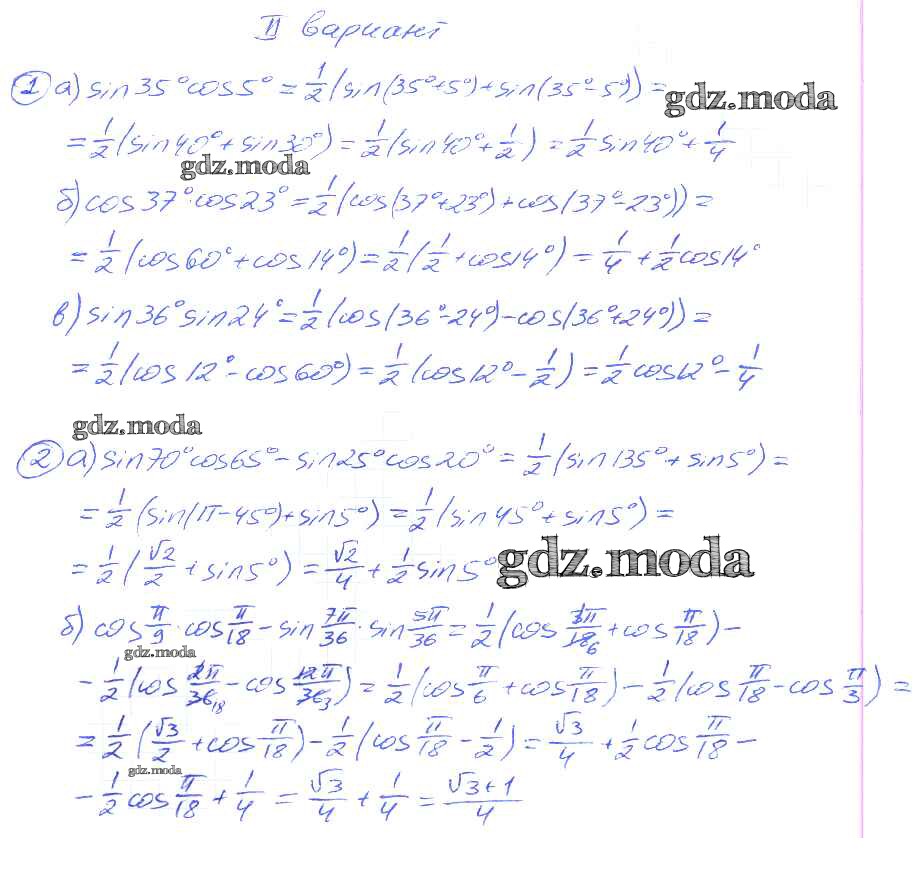 II вариант
① а) sin 35° cos 5° = 1/2 (sin(35°+5°) + sin(35°-5°)) =
gdz.moda
= 1/2 (sin 40° + sin 30°) = 1/2 (sin 40° + 1/2) = 1/2 sin 40° + 1/4
gdz.moda
б) cos 37° · cos 23° = 1/2 (cos(37°+23°) + cos(37°-23°)) =
= 1/2 (cos 60° + cos 14°) = 1/2 (1/2 + cos 14°) = 1/4 + 1/2 cos 14°
в) sin 36° sin 24° = 1/2 (cos(36°-24°) - cos(36°+24°)) =
= 1/2 (cos 12° - cos 60°) = 1/2 (cos 12° - 1/2) = 1/2 cos 12° - 1/4
gdz.moda
② а) sin 70° cos 65° - sin 25° cos 20° = 1/2 (sin 135° + sin 5°) =
= 1/2 (sin(π-45°) + sin 5°) = 1/2 (sin 45° + sin 5°) =
= 1/2 (√2/2 + sin 5°) = √2/4 + 1/2 sin 5°
gdz.moda
б) cos π/9 · cos π/18 - sin 7π/36 · sin 5π/36 = 1/2 (cos 3π/18 6 + cos π/18) -
gdz.moda
- 1/2 (cos 2π/36 18 - cos 12π/36 3) = 1/2 (cos π/6 + cos π/18) - 1/2 (cos π/18 - cos π/3) =
= 1/2 (√3/2 + cos π/18) - 1/2 (cos π/18 - 1/2) = √3/4 + 1/2 cos π/18 -
gdz.moda
- 1/2 cos π/18 + 1/4 = √3/4 + 1/4 = √3+1/4